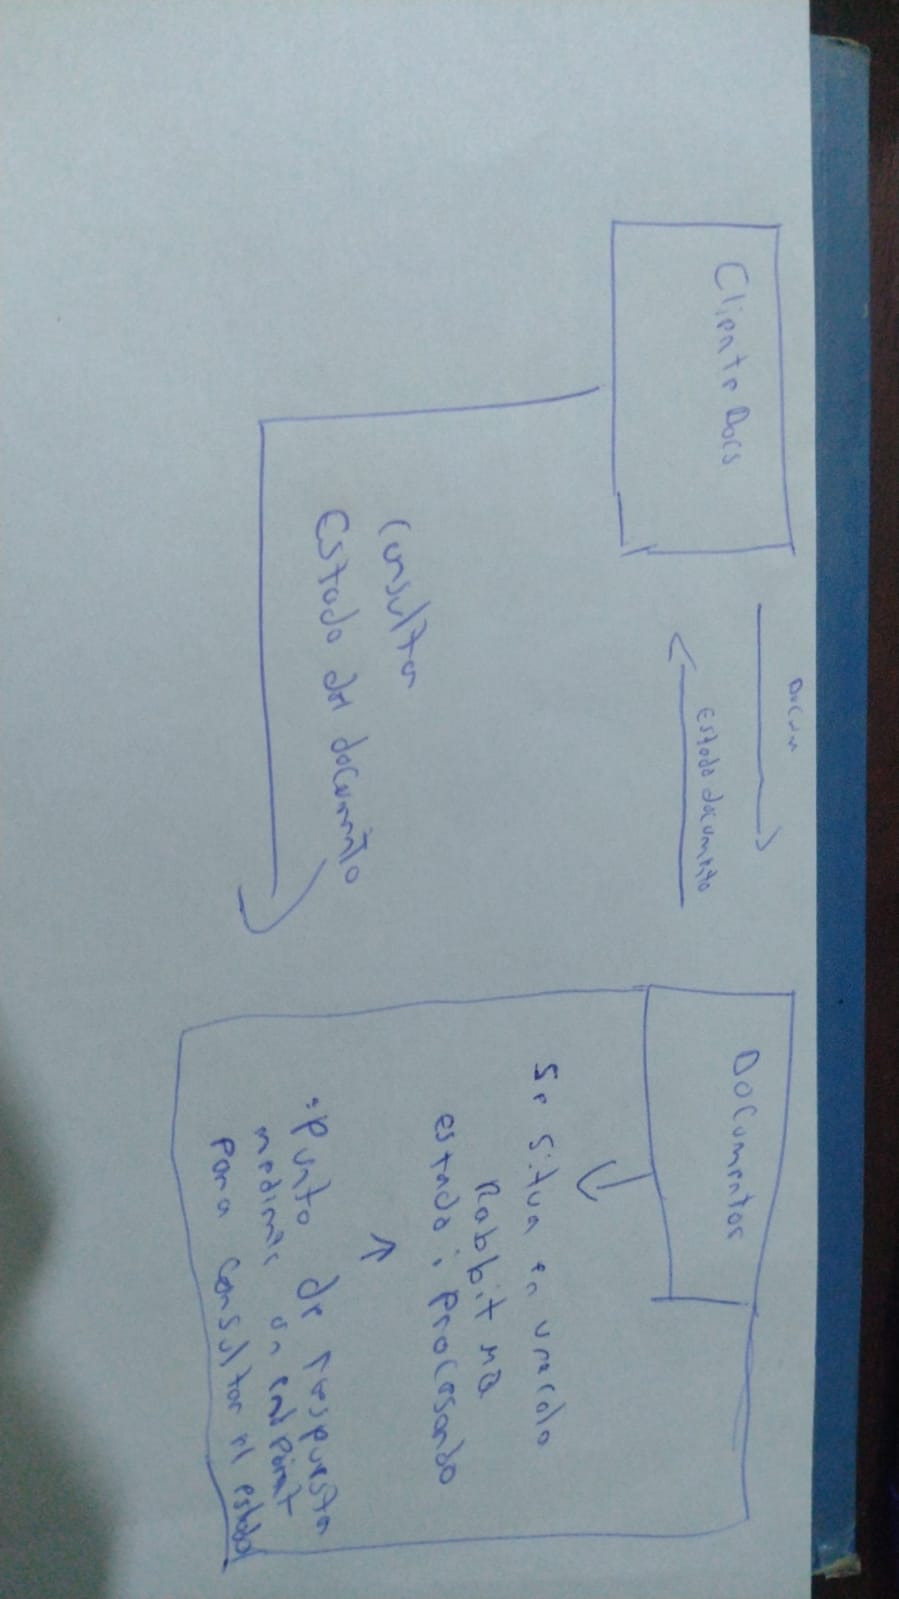 Cliente Docs
Docum
Estado documento
Consultar
Estado del documento
Documentos
Se situa en una cola
Rabbit MQ
estado: procesando
Punto de respuesta
mediante un endpoint
para consultar el estado